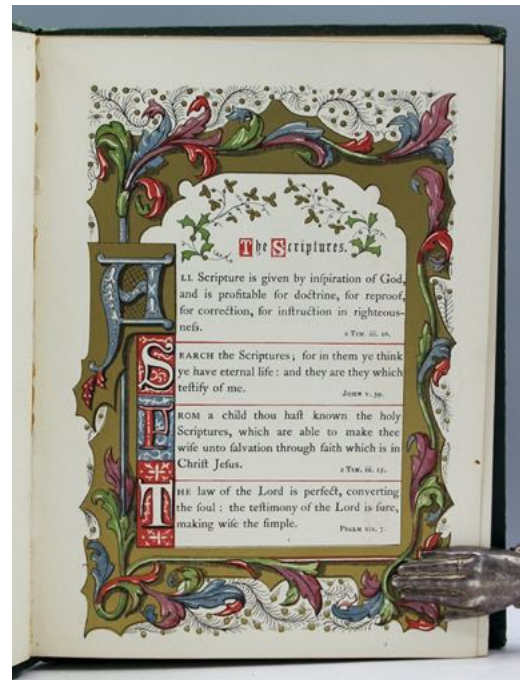 The Scriptures.
ALL Scripture is given by inſpiration of God,
and is profitable for doctrine, for reproof,
for correction, for inſtruction in righteous-
neſs.
2 Tim. iii. 16.
SEARCH the Scriptures; for in them ye think
ye have eternal life: and they are they which
teſtify of me.
John v. 39.
FROM a child thou haſt known the holy
Scriptures, which are able to make thee
wiſe unto ſalvation through faith which is in
Chriſt Jeſus.
2 Tim. iii. 15.
THE law of the Lord is perfect, converting
the ſoul: the teſtimony of the Lord is ſure,
making wiſe the ſimple.
Psalm xix. 7.